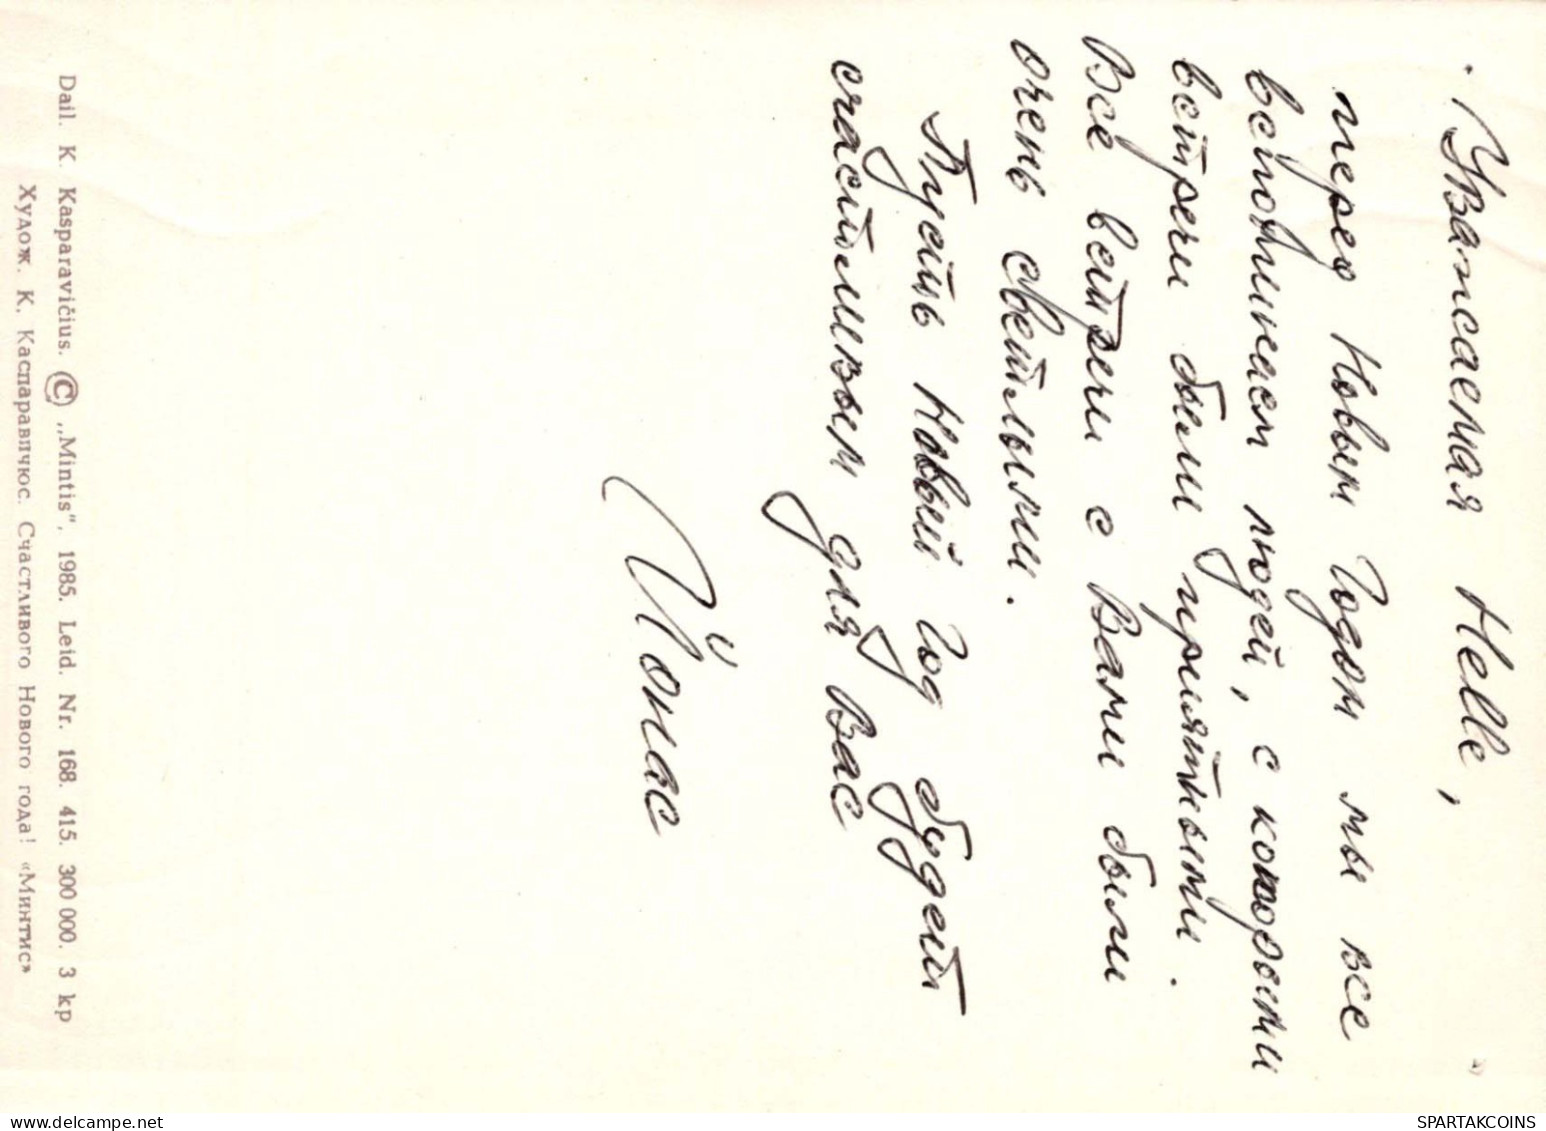 Уважаемая Helle,
перед Новым Годом мы все
вспоминаем людей, с которыми
встречи были приятными.
Все встречи с Вами были
очень светлыми.
Пусть Новый Год будет
счастливым для Вас
Йонас
Dail. K. Kasparavičius. © „Mintis“, 1985. Leid. Nr. 168. 415. 300 000. 3 kp
Худож. К. Каспаравичюс. Счастливого Нового года! «Минтис»
delcampe.net
SPARTAKCOINS